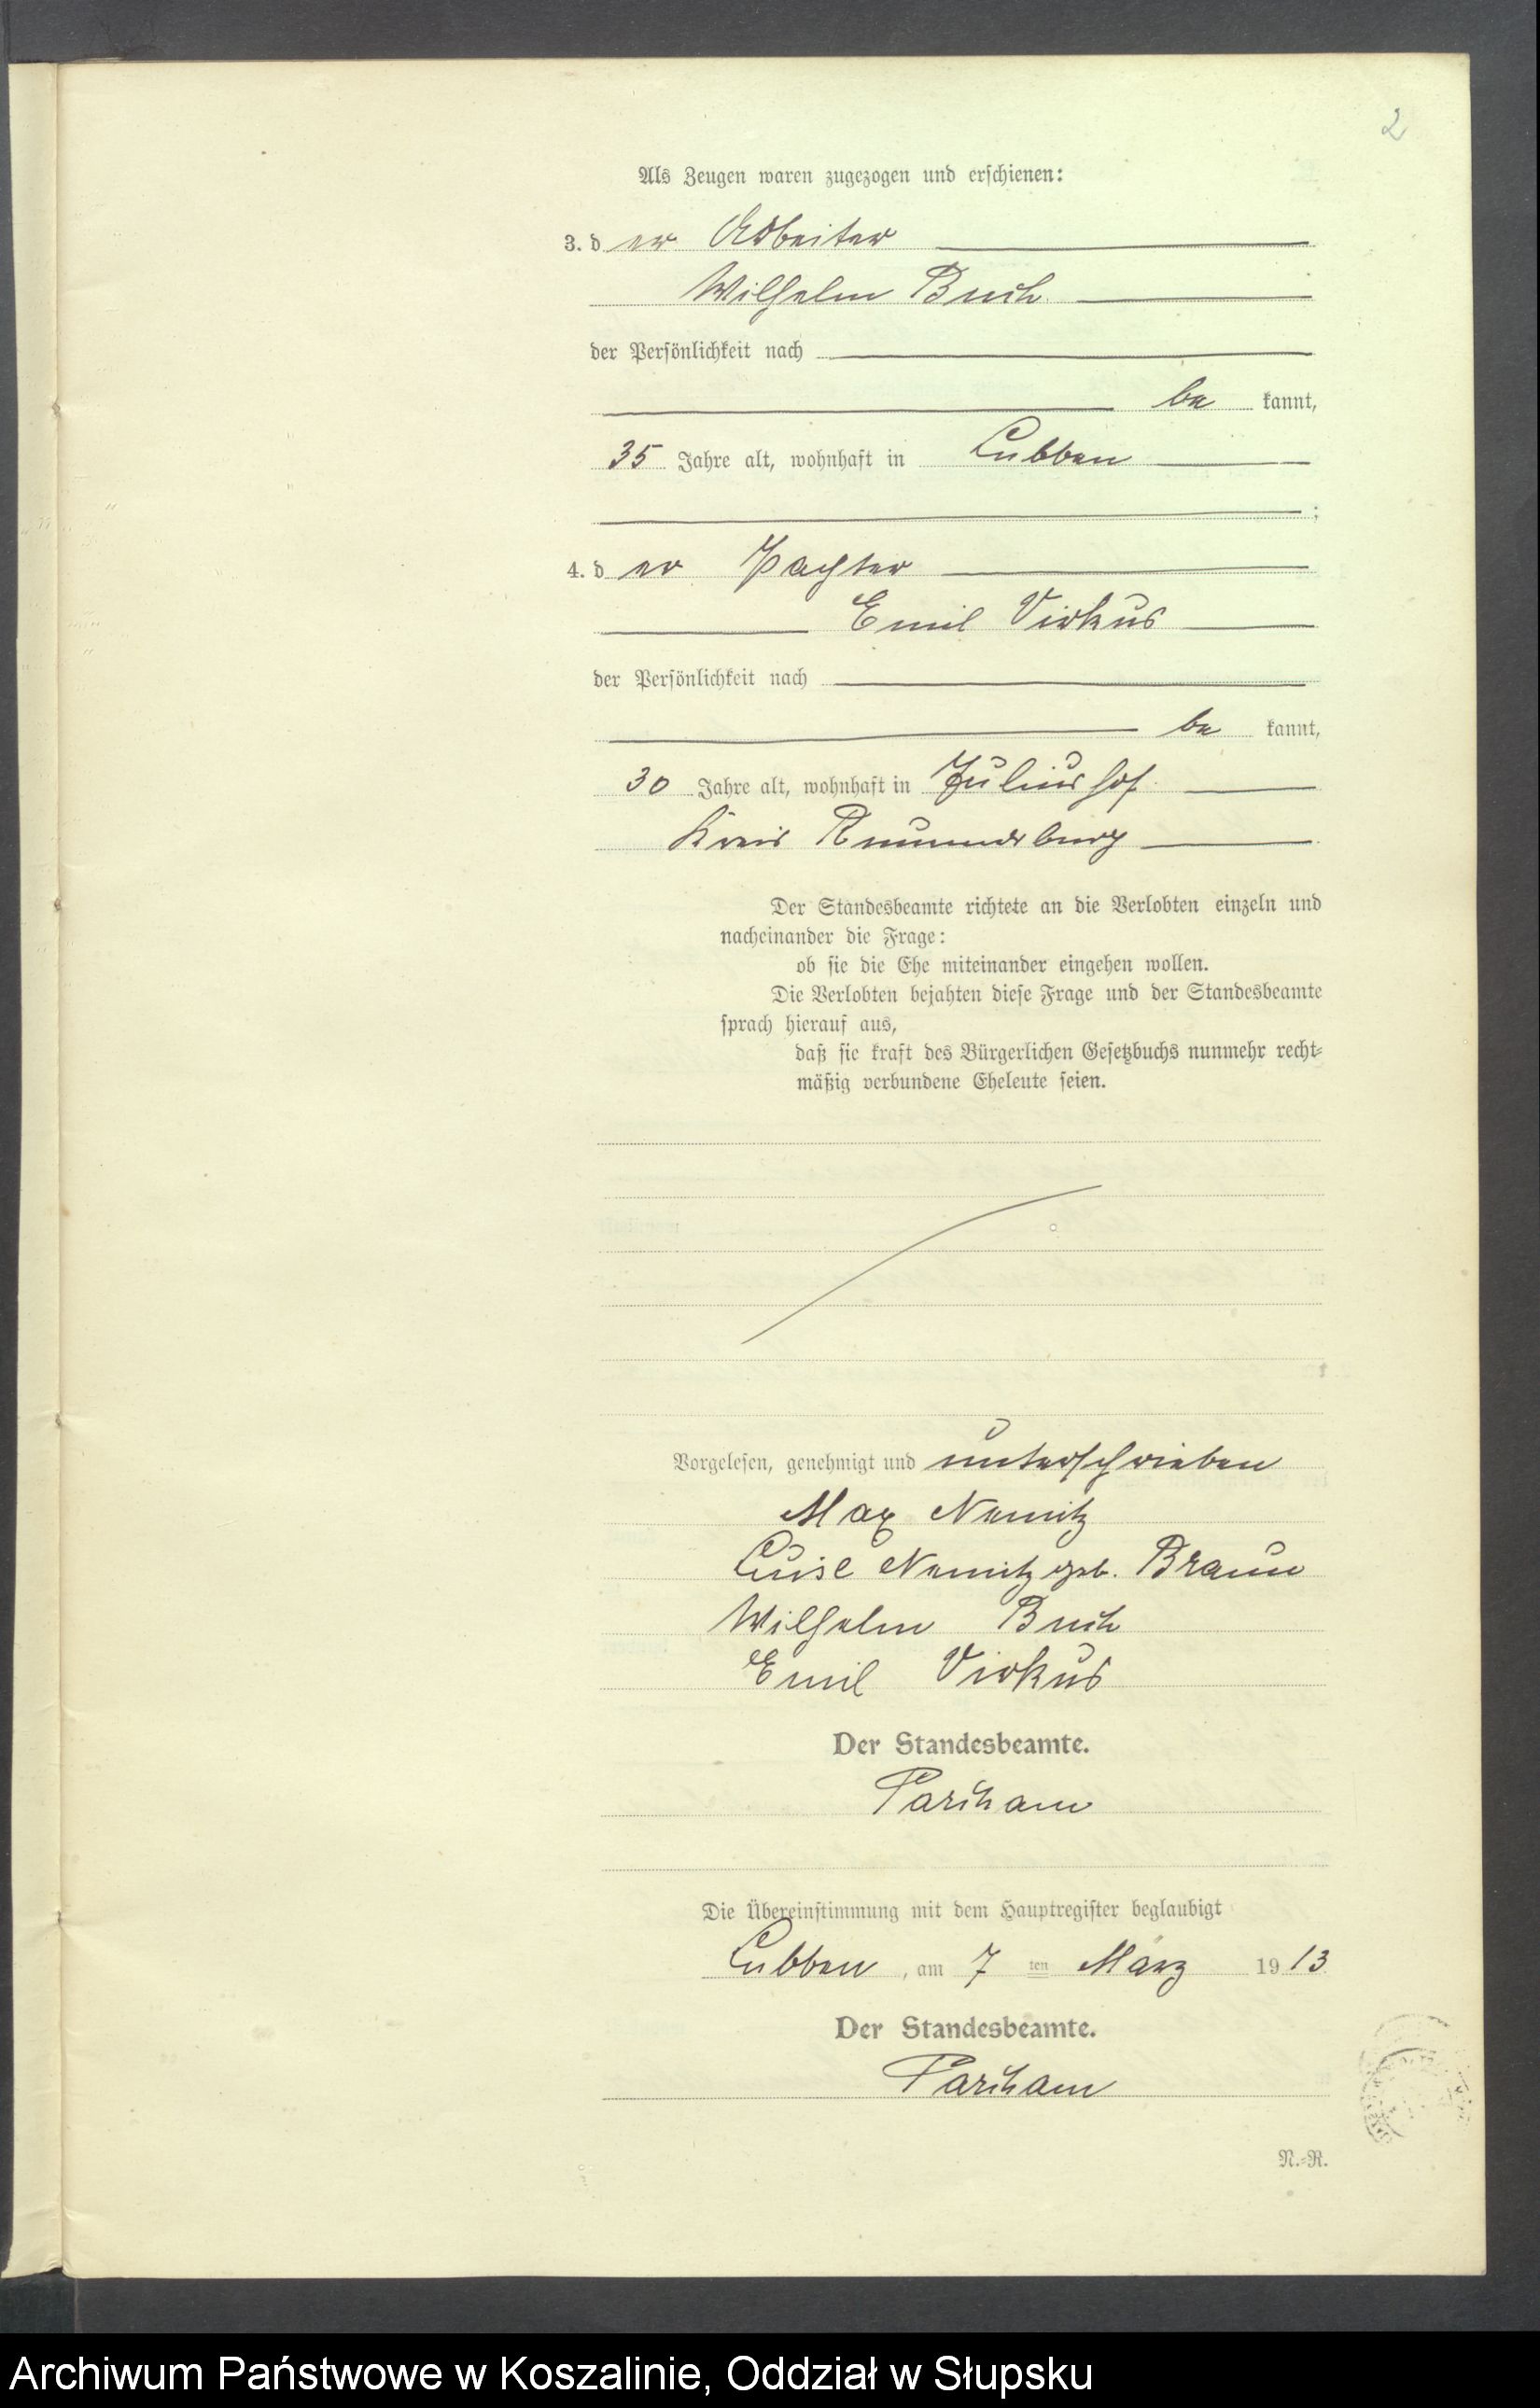 2
Als Zeugen waren zugezogen und erschienen:
3. der Arbeiter
Wilhelm Buch
der Persönlichkeit nach
be kannt,
35 Jahre alt, wohnhaft in Lubben
;
4. der Pachter
Emil Virkus
der Persönlichkeit nach
be kannt,
30 Jahre alt, wohnhaft in Julius hof
Kreis Rummelsburg
Der Standesbeamte richtete an die Verlobten einzeln und
nacheinander die Frage:
ob sie die Ehe miteinander eingehen wollen.
Die Verlobten bejahten diese Frage und der Standesbeamte
sprach hierauf aus,
daß sie kraft des Bürgerlichen Gesetzbuchs nunmehr recht-
mäßig verbundene Eheleute seien.
Vorgelesen, genehmigt und unterschrieben
Max Nemitz
Luise Nemitz geb. Braun
Wilhelm Buch
Emil Virkus
Der Standesbeamte.
Die Übereinstimmung mit dem Hauptregister beglaubigt
Lubben, am 7 ten März 1913
Der Standesbeamte.
N.-R.
Archiwum Państwowe w Koszalinie, Oddział w Słupsku